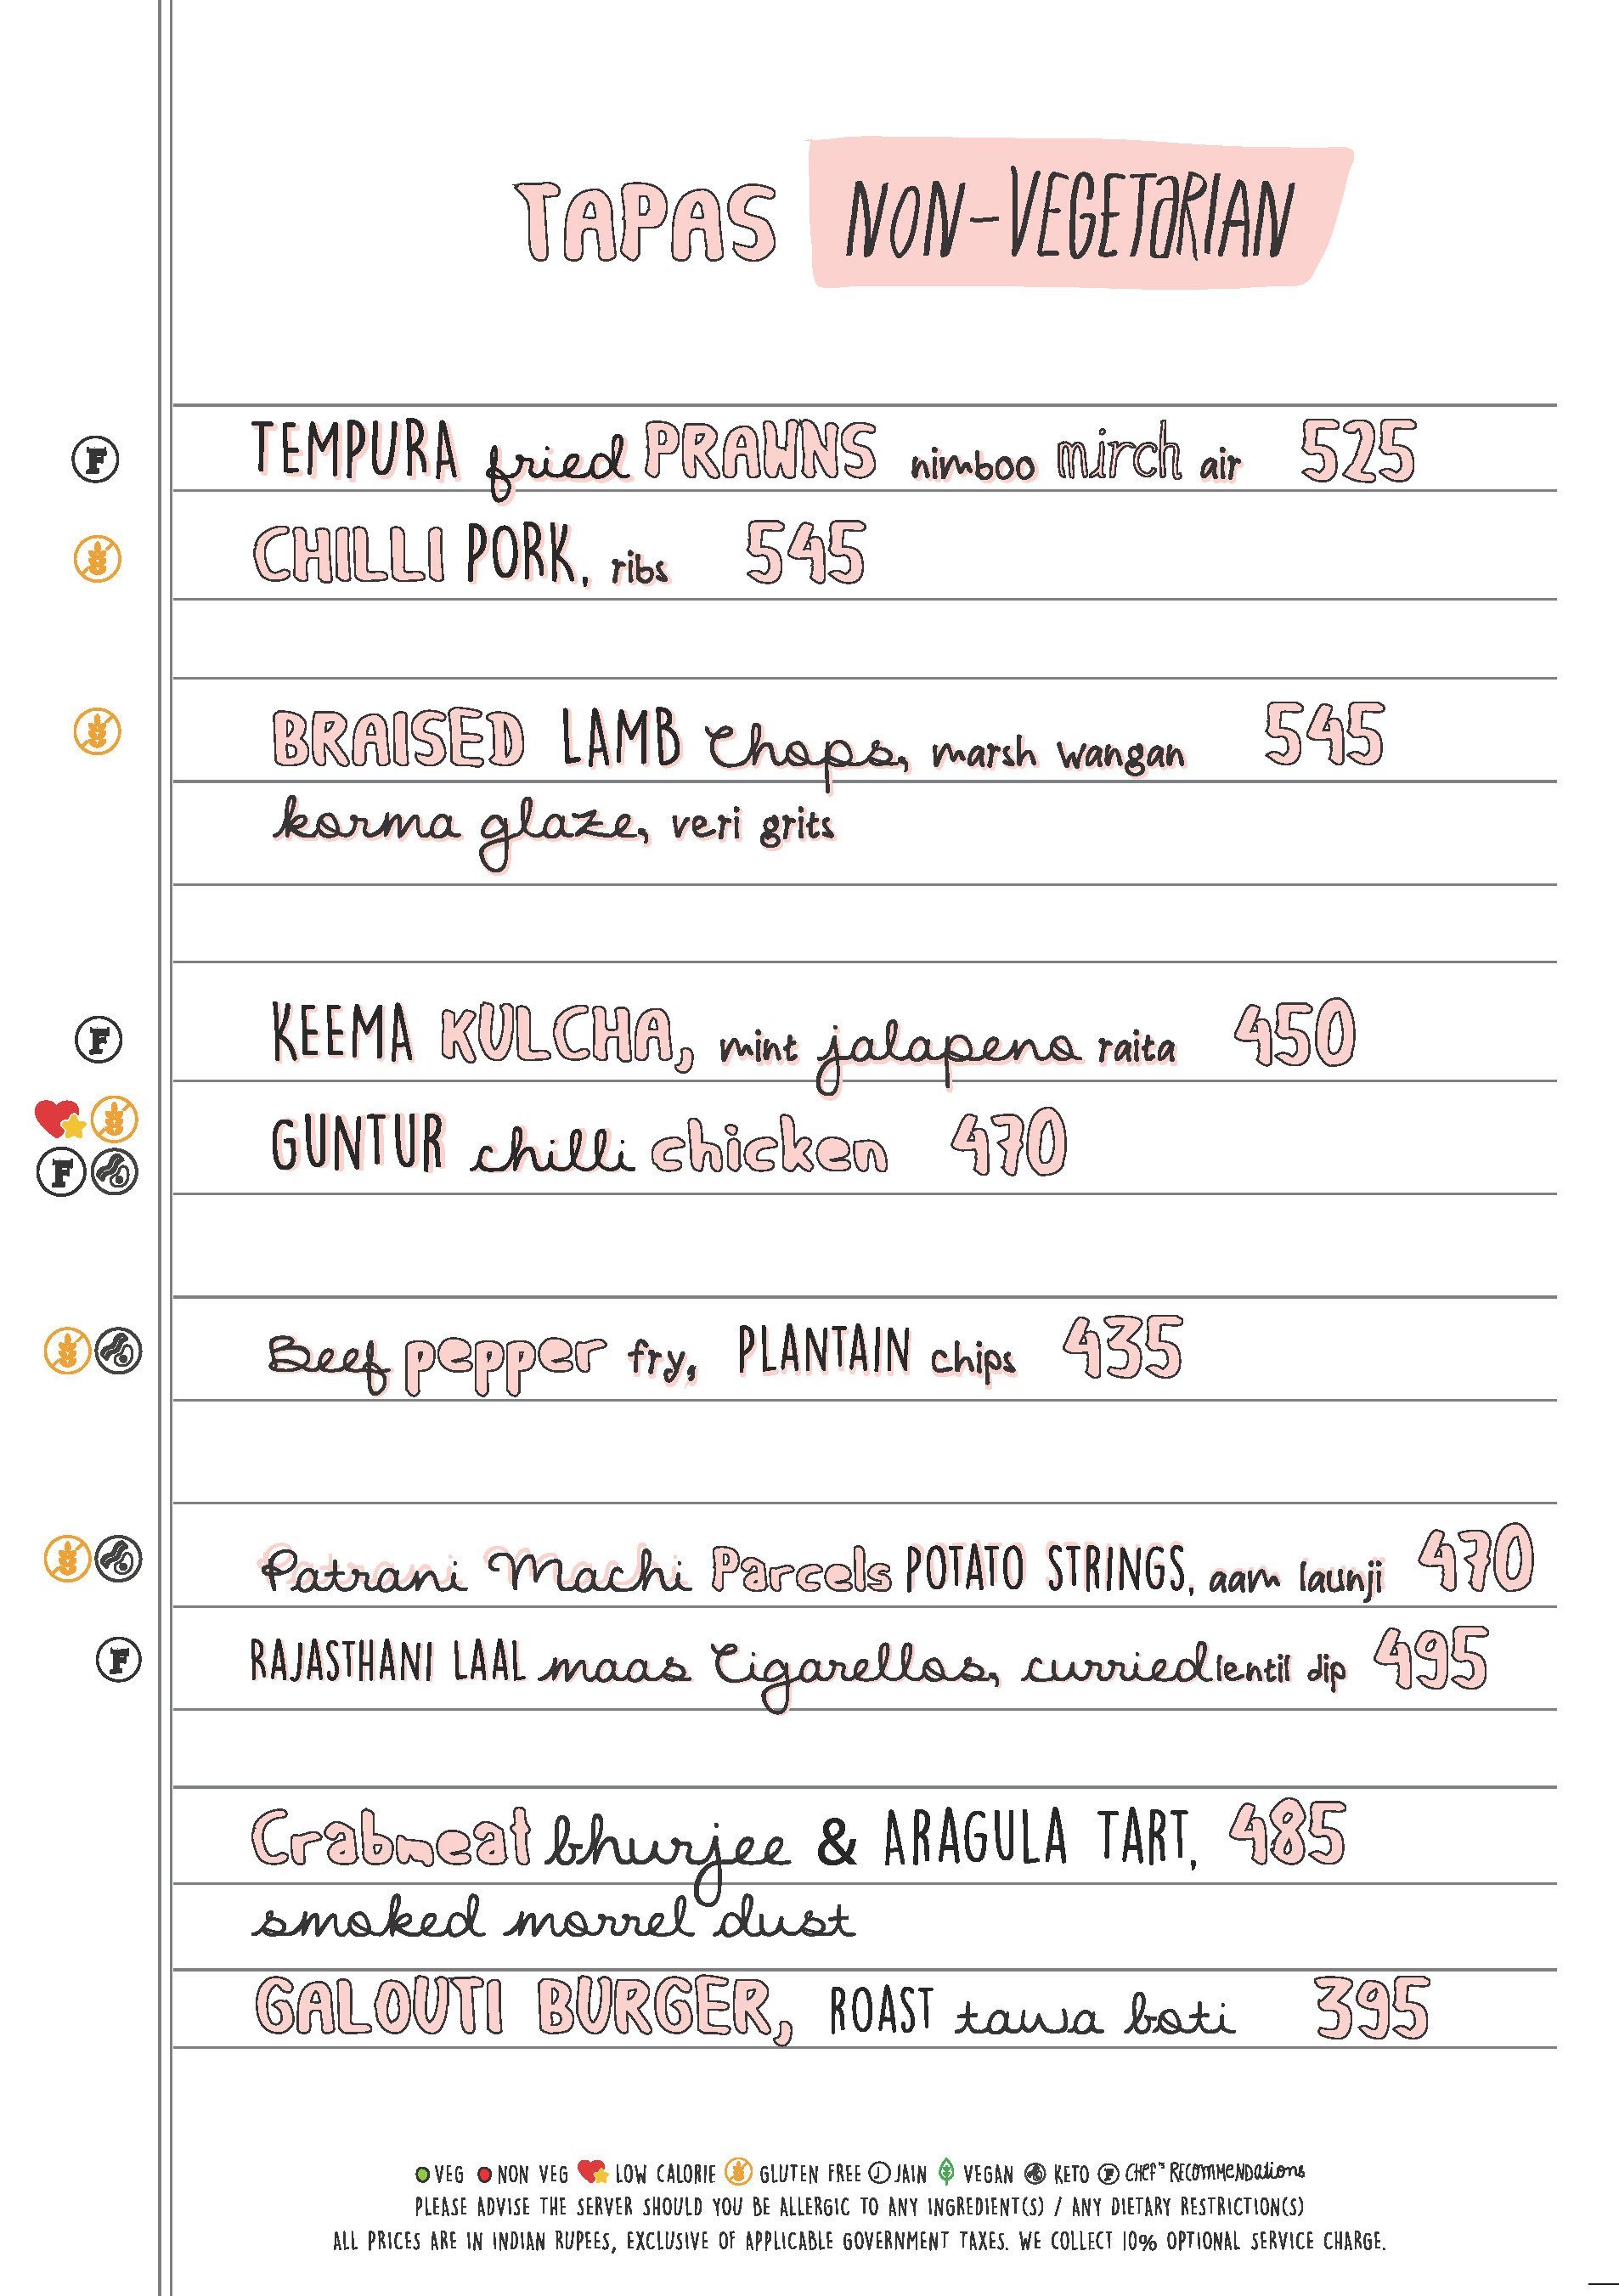 TAPAS NON-VEGETARIAN
F TEMPURA fried PRAWNS nimboo mirch air 525
CHILLI PORK, ribs 545
BRAISED LAMB Chops, marsh wangan 545
korma glaze, veri grits
F KEEMA KULCHA, mint jalapeno raita 450
F GUNTUR chilli chicken 470
Beef pepper fry, PLANTAIN chips 435
Patrani Machi Parcels POTATO STRINGS, aam launji 470
F RAJASTHANI LAAL maas Cigarellos, curried lentil dip 495
Crabmeat bhurjee & ARAGULA TART, 485
smoked morrel dust
GALOUTI BURGER, ROAST tawa boti 395
VEG NON VEG LOW CALORIE GLUTEN FREE J JAIN VEGAN KETO F CHEF'S RECOMMENDATIONS
PLEASE ADVISE THE SERVER SHOULD YOU BE ALLERGIC TO ANY INGREDIENT(S) / ANY DIETARY RESTRICTION(S)
ALL PRICES ARE IN INDIAN RUPEES, EXCLUSIVE OF APPLICABLE GOVERNMENT TAXES. WE COLLECT 10% OPTIONAL SERVICE CHARGE.